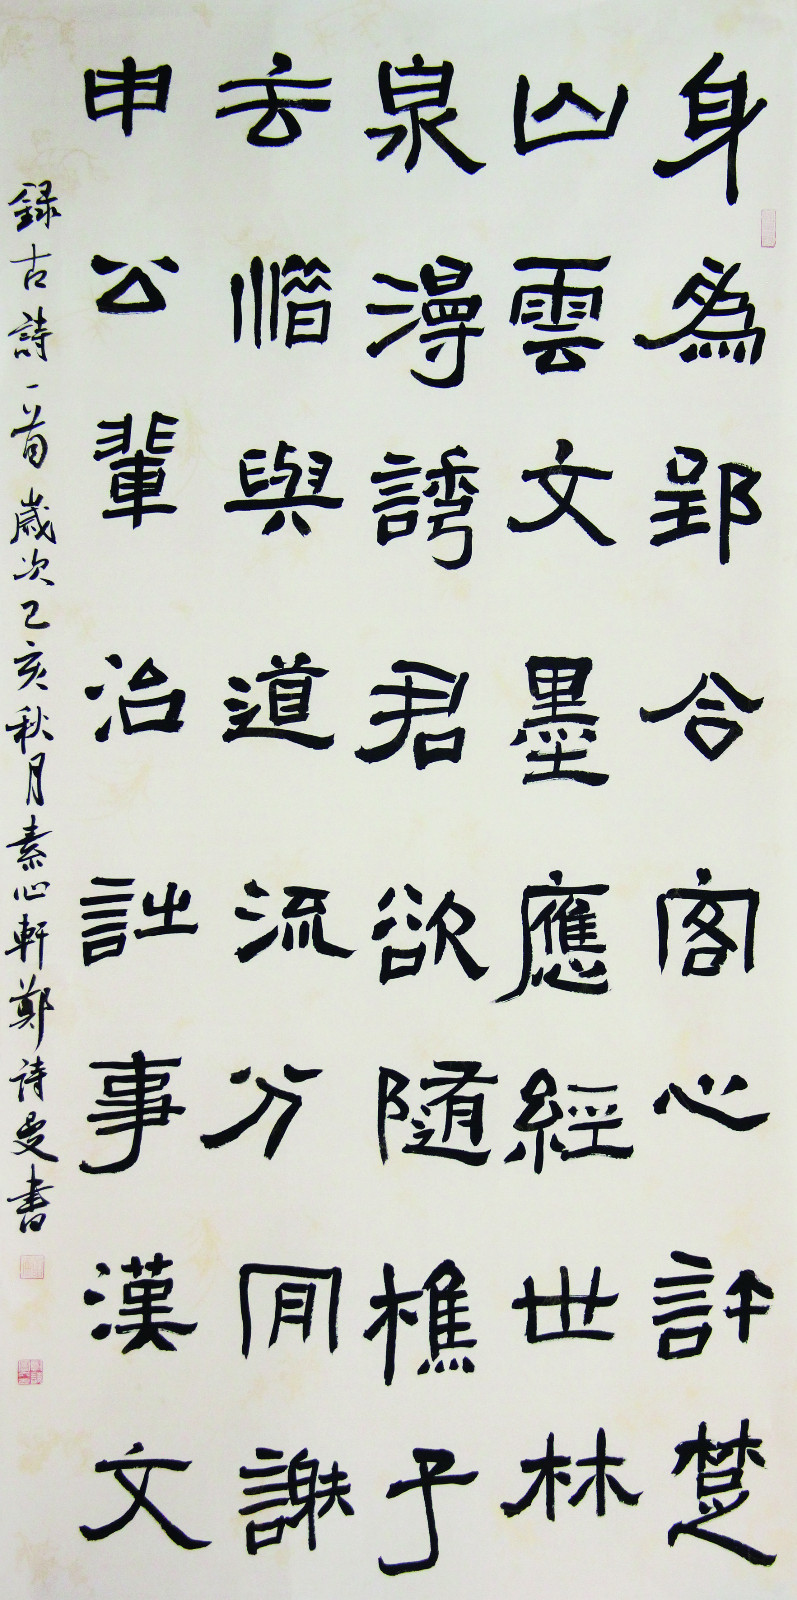 身為郢令客心許楚
山雲文墨應經世林
泉漫誇君欲隨樵子
去惜與道流分閒謝
申公輩治詘事漢文
録古詩一首歲次己亥秋月素心軒鄭詩書